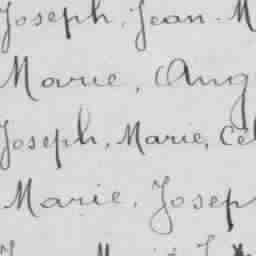 Joseph, Jean. M
Marie, Aug
Joseph, Marie, Cel
Marie, Josep